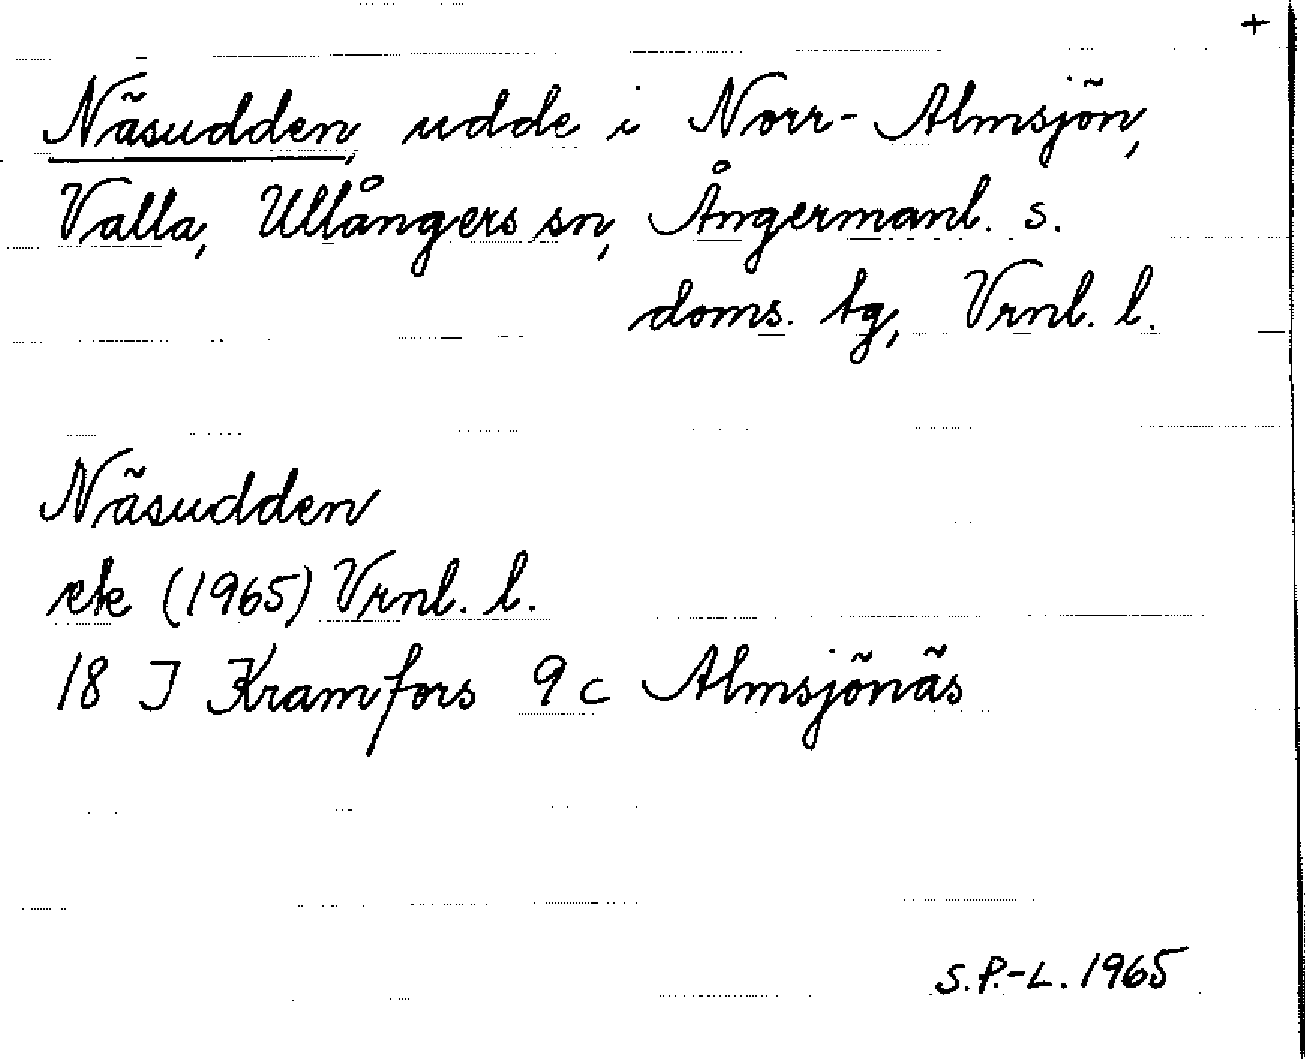 +
Näsudden, udde i Norr-Almsjön,
Valla, Ullångers sn, Ångermanl. s.
doms. tg, Vrnl. l.
Näsudden
ek (1965) Vrnl. l.
18 I Kramfors 9 c Almsjönäs
S.P.-L. 1965